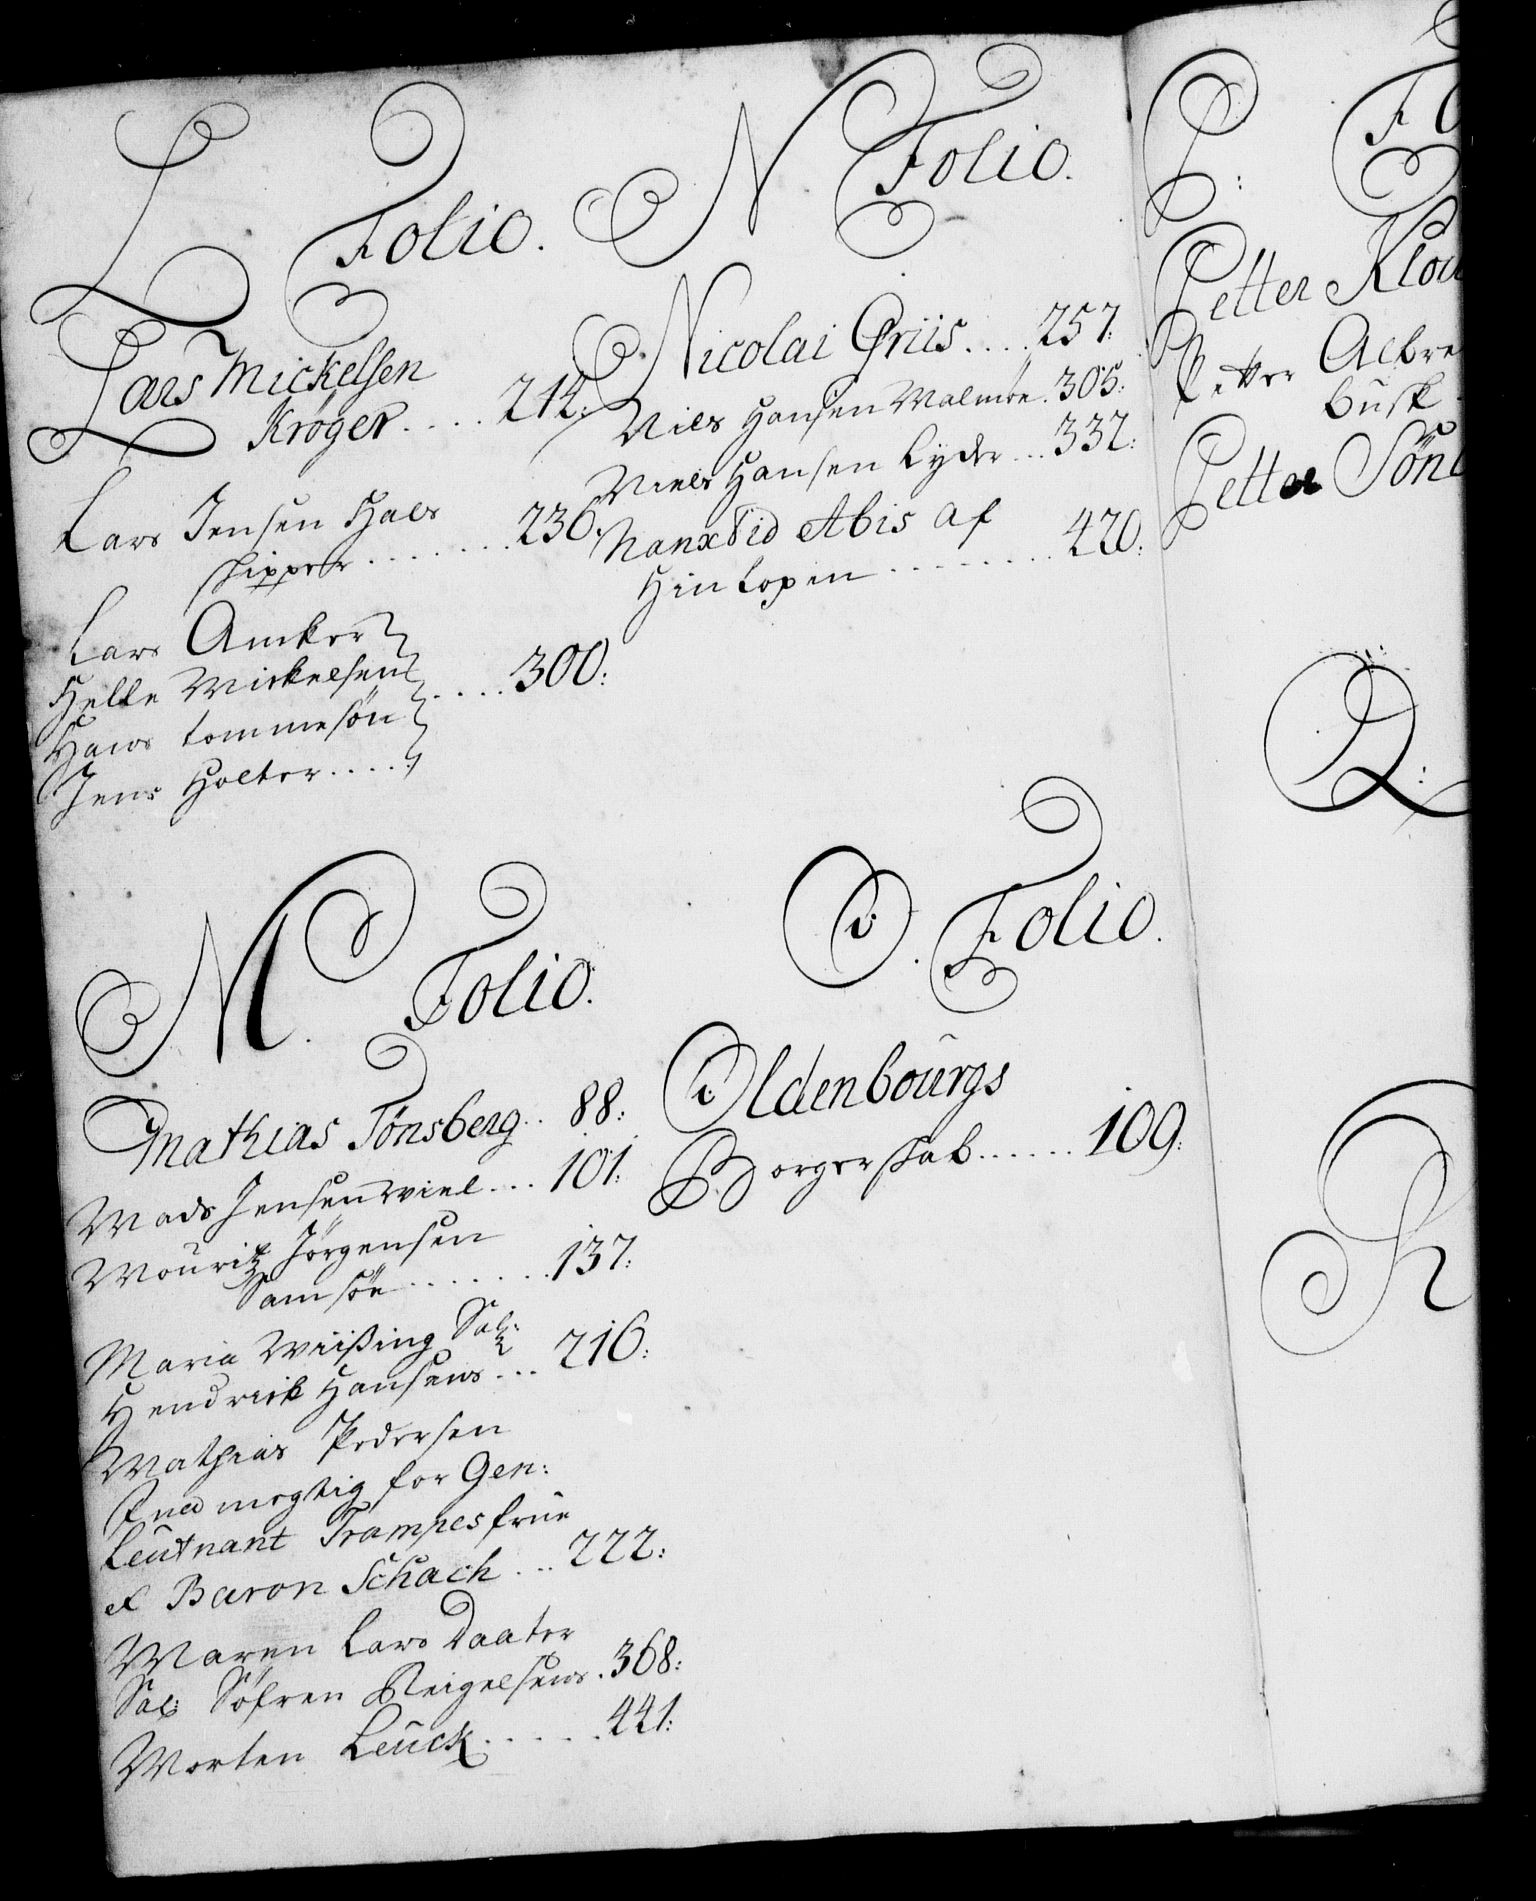 L Folio.
Lars Mickelsen
Krøger.... 214:
Lars Jensen Hals
skipper........ 236:
Lars Anker
Helle Mickelsen
Hans tommesøn .... 300:
Jens Holter.....
M. Folio.
Mathias Tønsberg.. 88:
Mads Jensen wiel... 101:
Mouritz Jørgensen
Samsøe........ 137:
Maria Wiißing Sal:
Hendrich Hansens... 216:
Mathias Pedersen
for Gen:
Leutnant Trampes frue
et Baron Schach... 222:
Maren Lars Daater
Sal: Søfren Reigelsens. 368:
Morten Leuck...... 441:
N Folio.
Nicolai Griis.... 257:
Niels Hansen Malmøe. 305:
Niels Hansen Lyder... 337:
Abis af
Hinlopen........ 420:
O. Folio.
Oldenbourgs
Borgerskab...... 109:
P:
Petter
Petter
busk
Petter
Q:
R